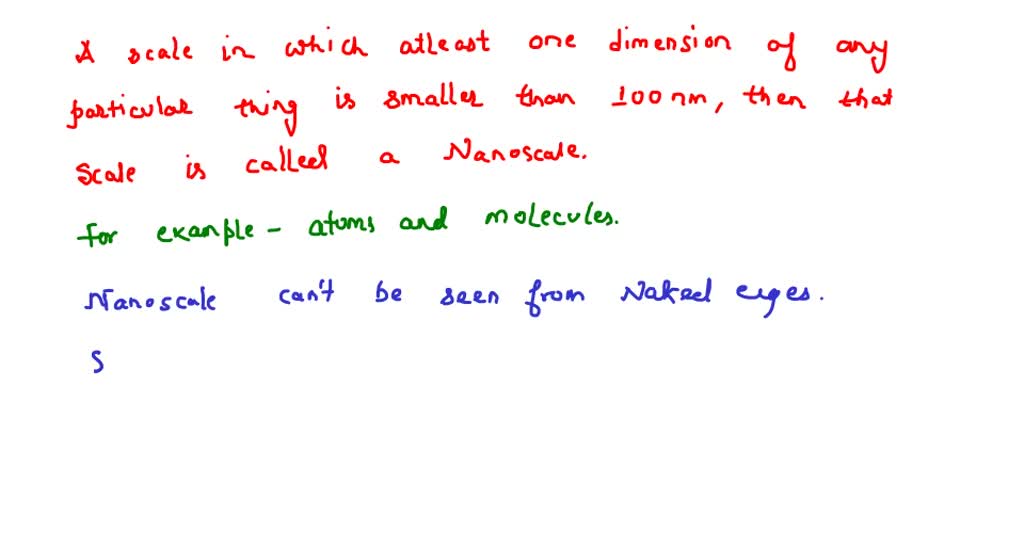 A scale in which atleast one dimension of any
particular thing is smaller than 100 nm, then that
Scale is called a Nanoscale.
for example - atoms and molecules.
Nanoscale can't be seen from Naked eyes.
S